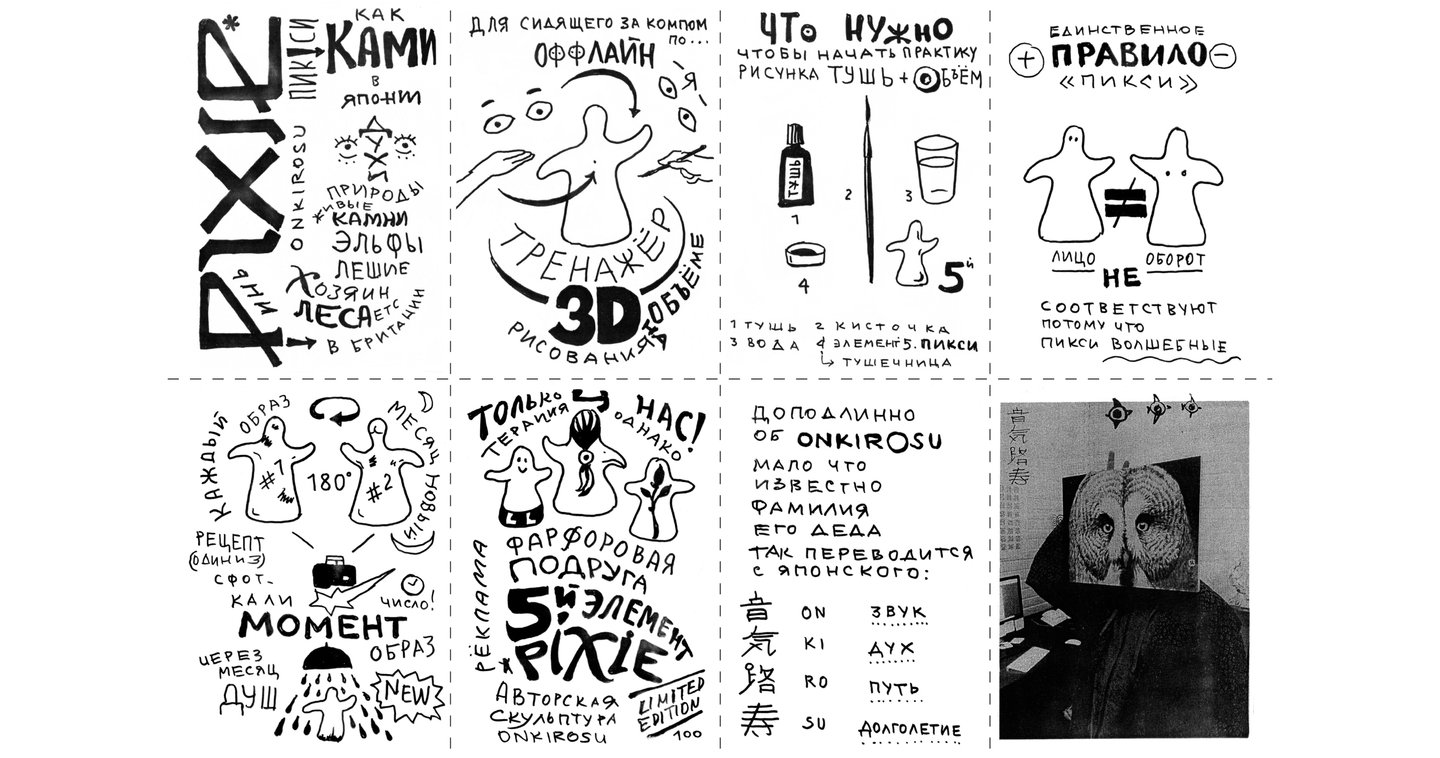 PIXIE*
ПИКСИ
ONKIROSU
КАК
КАМИ
В
ЯПОНИИ
ДУХИ
ПРИРОДЫ
ЖИВЫЕ
КАМНИ
ЭЛЬФЫ
ЛЕШИЕ
ХОЗЯИН
ЛЕСА ETC
ЯНИ
В БРИТАНИИ
ДЛЯ СИДЯЩЕГО ЗА КОМПОМ
ПО...
ОФФЛАЙН
- Я -
ТРЕНАЖЁР
3D
РИСОВАНИЯ
НА ОБЪЁМЕ
ЧТО НУЖНО
ЧТОБЫ НАЧАТЬ ПРАКТИКУ
РИСУНКА ТУШЬ + ОБЪЁМ
ТУШЬ
1
2
3
4
5й
1 ТУШЬ 2 КИСТОЧКА
3 ВОДА 4 ЭЛЕМЕНТ 5. ПИКСИ
ТУШЕЧНИЦА
ЕДИНСТВЕННОЕ
+ ПРАВИЛО -
«ПИКСИ»
≠
ЛИЦО ОБОРОТ
НЕ
СООТВЕТСТВУЮТ
ПОТОМУ ЧТО
ПИКСИ ВОЛШЕБНЫЕ
КАЖДЫЙ
ОБРАЗ
МЕСЯЦ НОВЫЙ
#1 180° #2
РЕЦЕПТ
(ОДИН ИЗ)
СФОТ-
КАЛИ
ЧИСЛО!
МОМЕНТ
ОБРАЗ
ЦЕРЕЗ
МЕСЯЦ
ДУШ
NEW
ТОЛЬКО
ТЕРАПИЯ
У НАС!
ОДНАКО
РЁКЛАМА
ФАРФОРОВАЯ
ПОДРУГА
5й ЭЛЕМЕНТ
*PIXIE
АВТОРСКАЯ
СКУЛЬПТУРА
ONKIROSU
LIMITED
EDITION
100
ДОПОДЛИННО
ОБ ONKIROSU
МАЛО ЧТО
ИЗВЕСТНО
ФАМИЛИЯ
ЕГО ДЕДА
ТАК ПЕРЕВОДИТСЯ
С ЯПОНСКОГО:
音 ON ЗВУК
気 KI ДУХ
路 RO ПУТЬ
寿 SU ДОЛГОЛЕТИЕ
音
気
路
寿